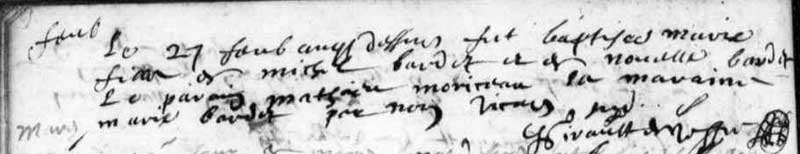 feub
Le 27 feub an que dessus fut baptisee marie
fille de michel bardet et de nouelle bardet
Le parain mathieu moriceau la maraine
marie bardet par nous vicaire
Mars